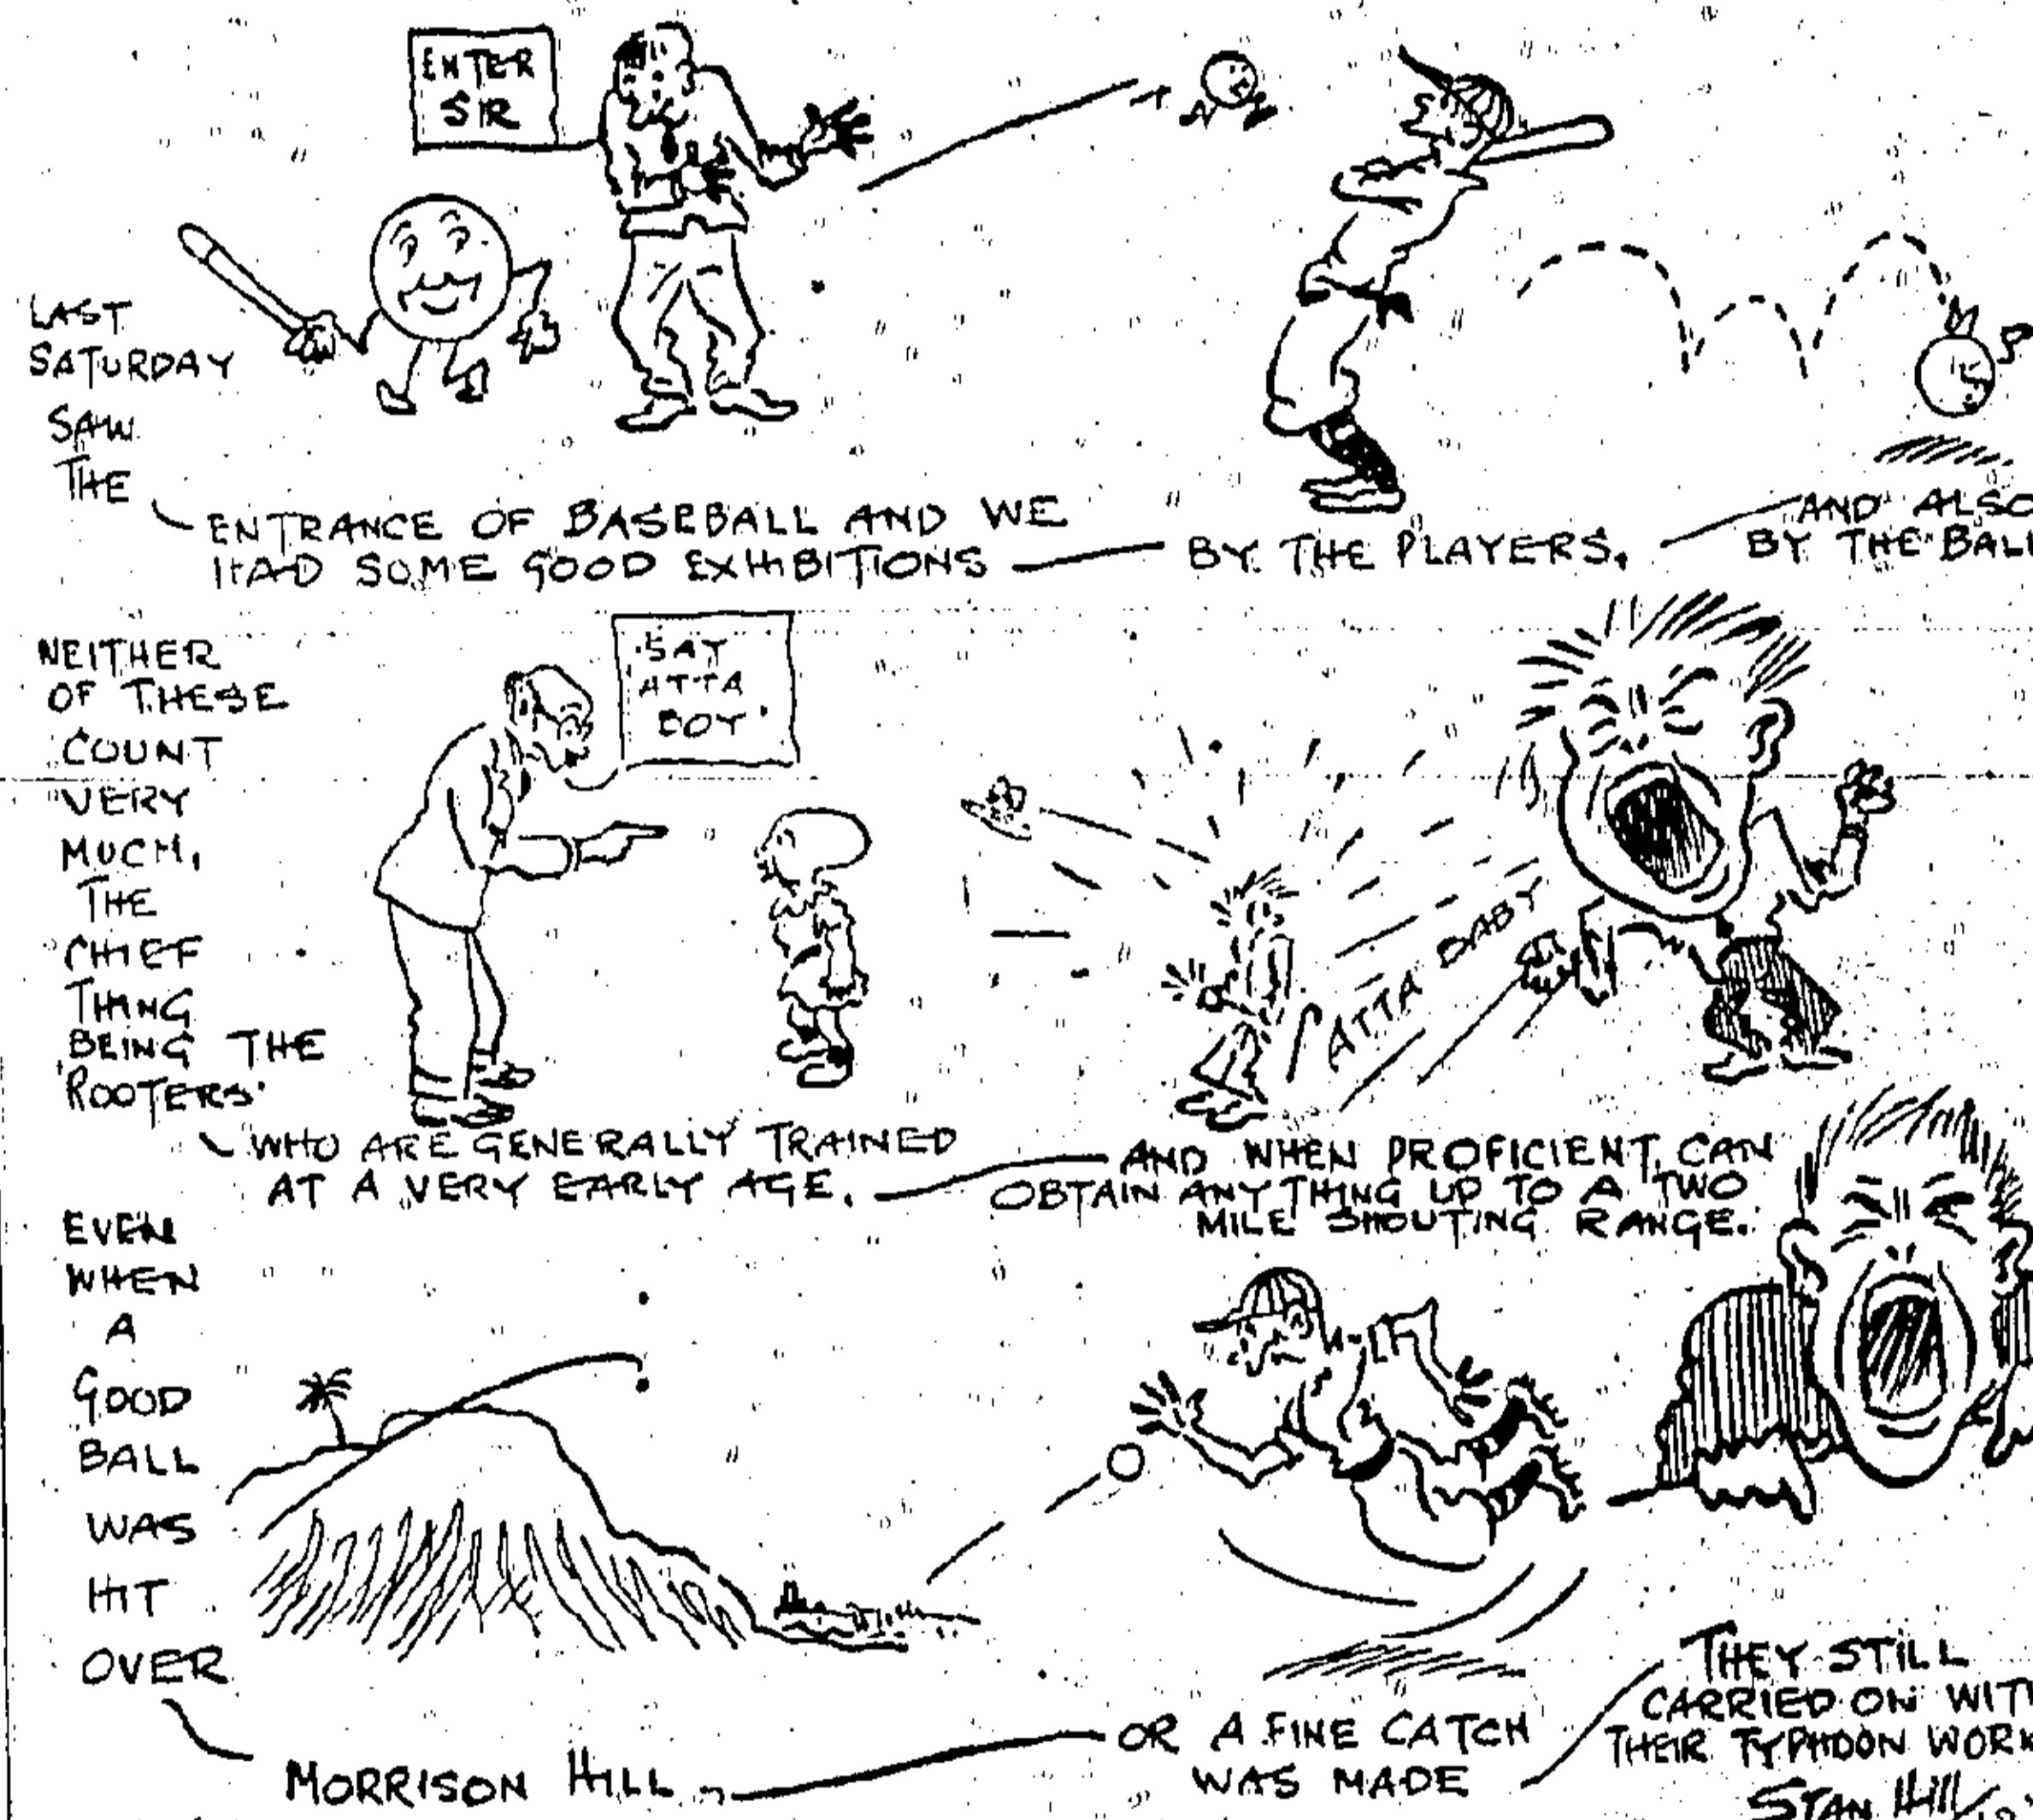 ENTER
SIR
LAST
SATURDAY
SAW
THE
ENTRANCE OF BASEBALL AND WE
HAD SOME GOOD EXHIBITIONS
BY THE PLAYERS.
AND ALSO
BY THE BALL
NEITHER
OF THESE
COUNT
VERY
MUCH,
THE
CHIEF
THING
BEING THE
ROOTERS
SAY
ATTA
BOY
WHO ARE GENERALLY TRAINED
AT A VERY EARLY AGE.
ATTA BABY
AND WHEN PROFICIENT, CAN
OBTAIN ANYTHING UP TO A TWO
MILE SHOUTING RANGE.
EVEN
WHEN
A
GOOD
BALL
WAS
HIT
OVER
MORRISON HILL
OR A FINE CATCH
WAS MADE
THEY STILL
CARRIED ON WITH
THEIR TYPHOON WORK
STAN HILL